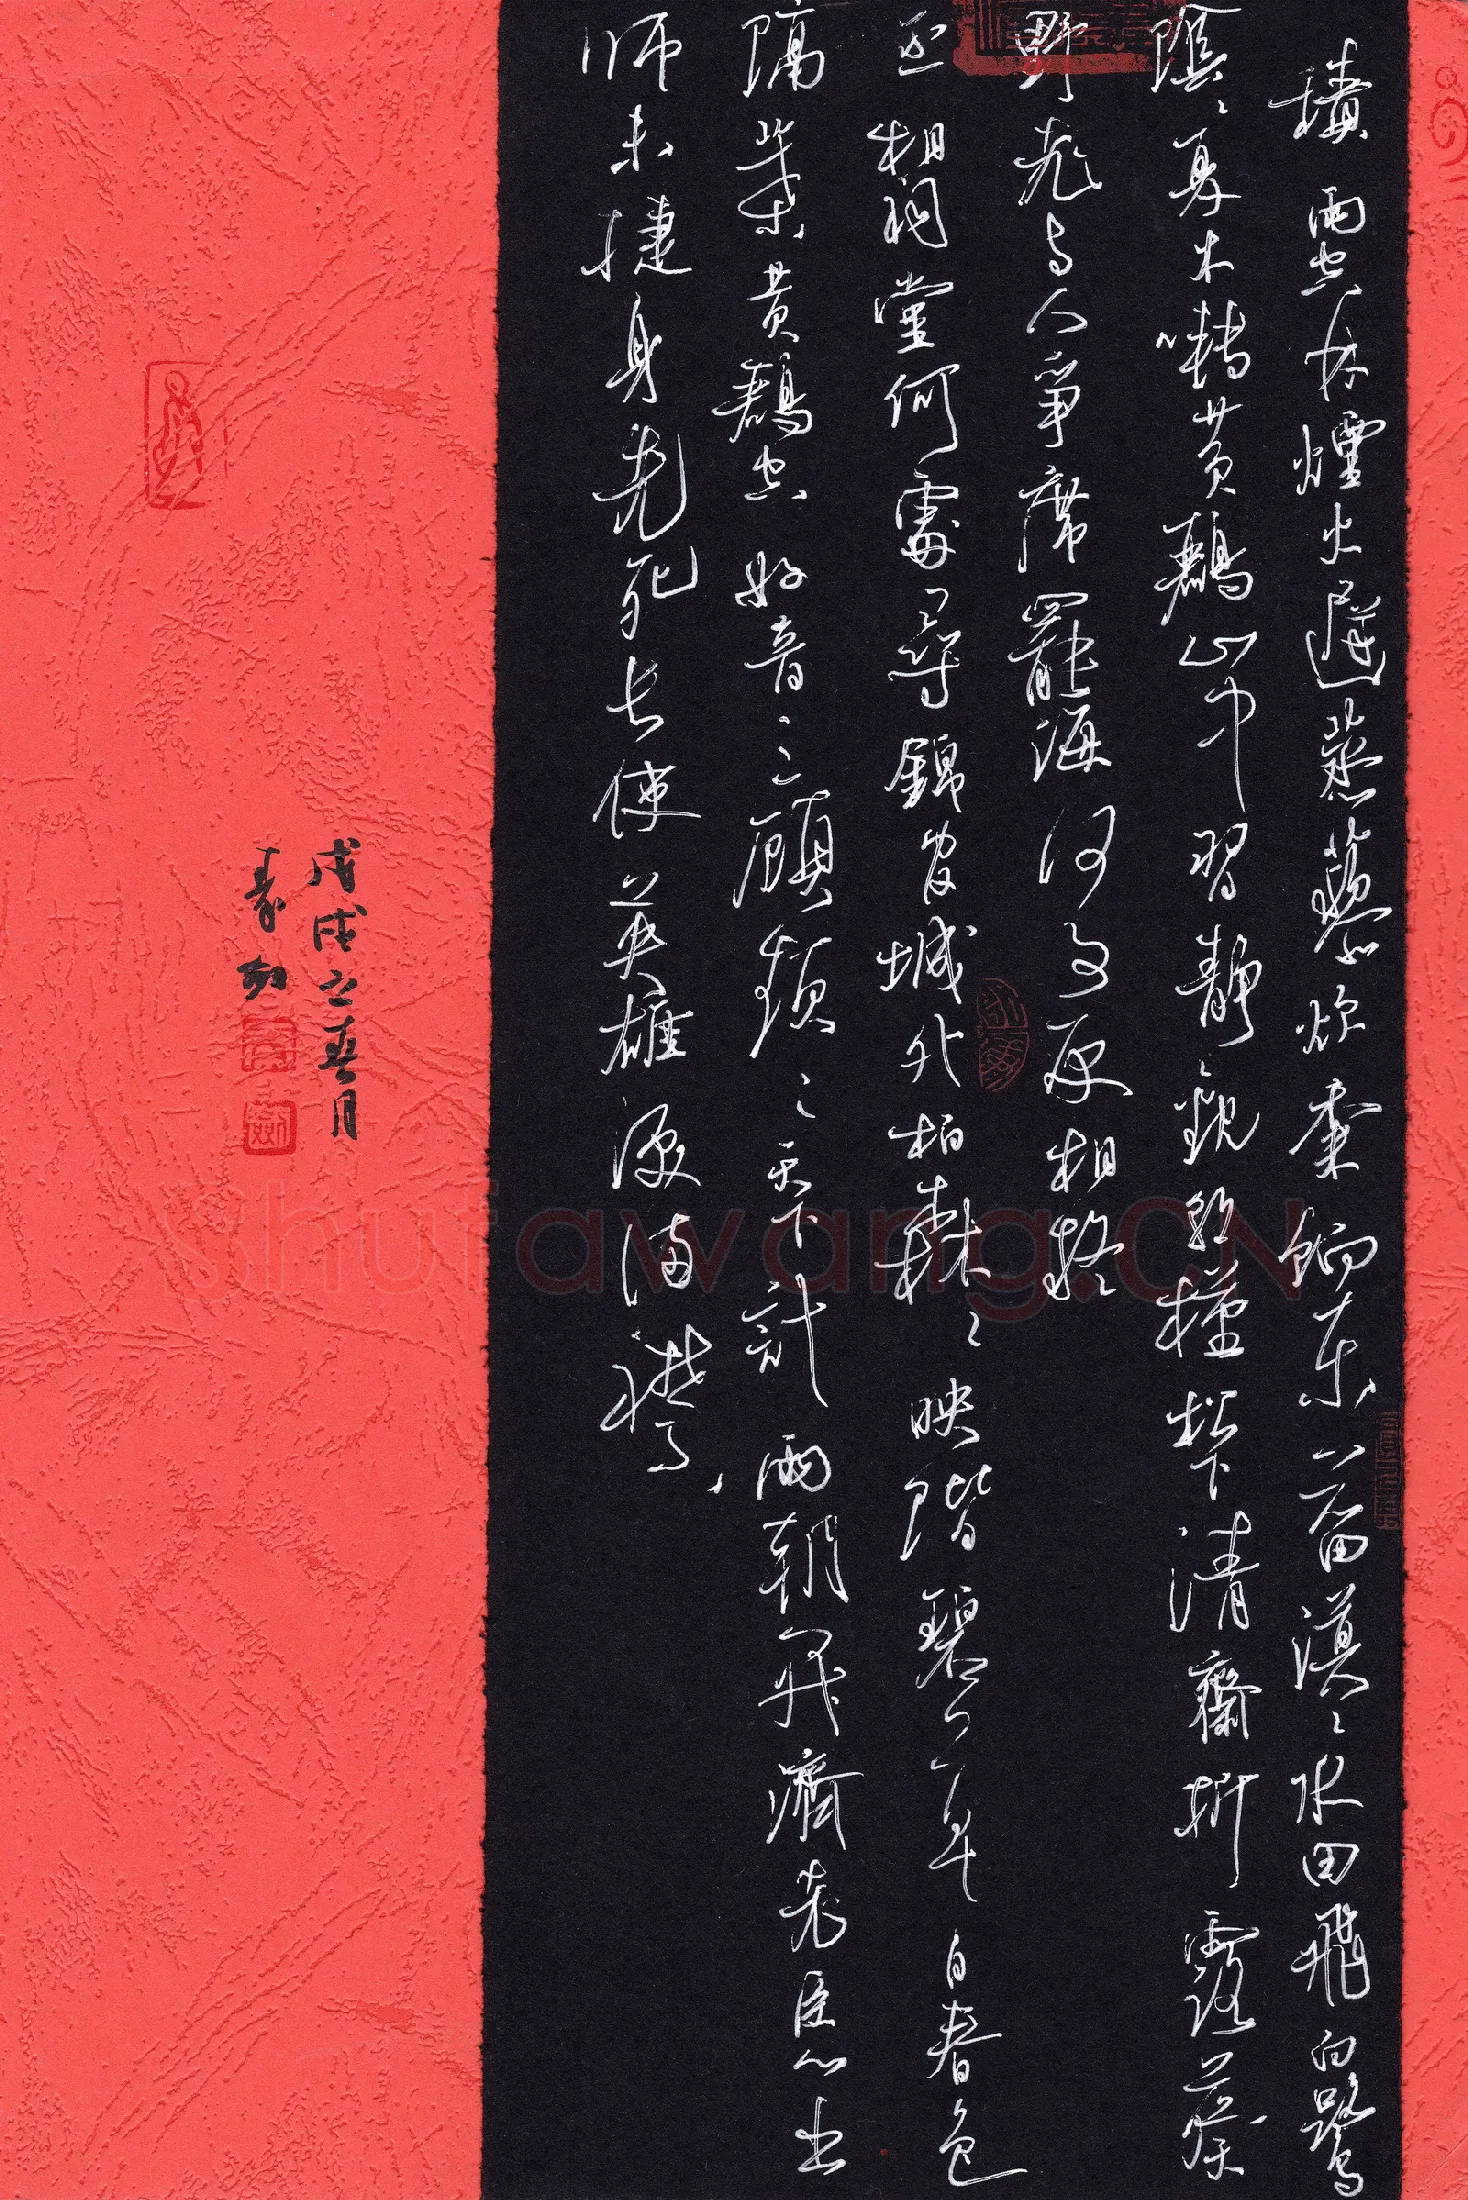 積雨空林煙火遲蒸藜炊黍餉東菑漠々水田飛白鷺
陰々夏木囀黃鸝山中習靜觀朝槿松下清齋折露葵
野老与人爭席罷海何事更相疑
丞相祠堂何處尋錦官城外柏森々映階碧草自春色
隔葉黃鸝空好音三顧頻々天下計兩朝開濟老臣心出
師未捷身先死長使英雄淚滿襟
戊戌之春月
Shufawang.CN